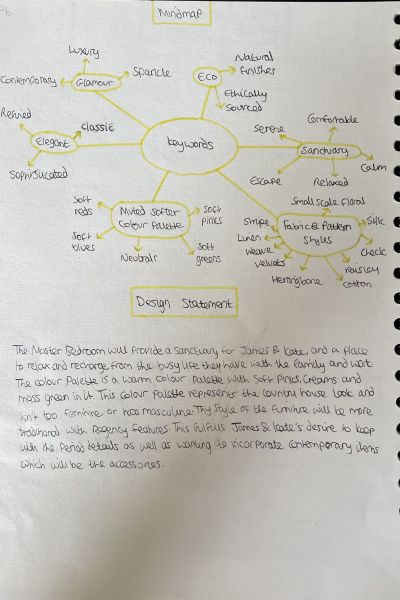 Mindmap
Luxury
Contemporary
Glamour
Sparcle
Eco
Natural
finishes
Ethically
Sourced
Refined
Elegant
classic
Sophisticated
Keywords
Serene
Comfortable
Sanctuary
Calm
Escape
Relaxed
Soft
reds
Muted Softer
Colour Palette
Soft
pinks
Soft
blues
Neutrals
Soft
greens
Small scale floral
Stripe
Fabric & Pattern
Styles
Silk
Linen
weave
Velvets
Check
Herringbone
Paisley
Cotton
Design Statement
The Master Bedroom will provide a sanctuary for James & Kate, and a place
to relax and recharge from the busy life they have with the family and work.
The colour Palette is a warm colour Palette with soft pinks, creams and
moss green in it. This colour Palette represents the country house look and
isn't too feminine or too masculine. The style of the furniture will be more
traditional with Regency features. This fulfills James & Kate's desire to keep
with the Period details as well as wanting to incorporate contemporary items
which will be the accessories.